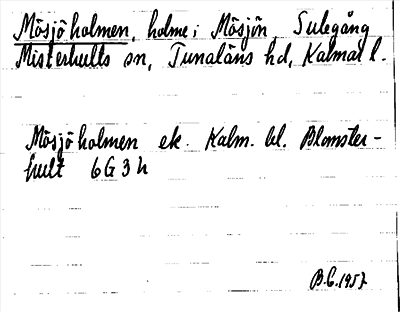 Mösjöholmen, holme i Mösjön, Sulegång
Misterhults sn, Tunaläns hd, Kalmar l.
Mösjöholmen ek. Kalm. bl. Blomster-
hult 6G3h
B.C. 1957